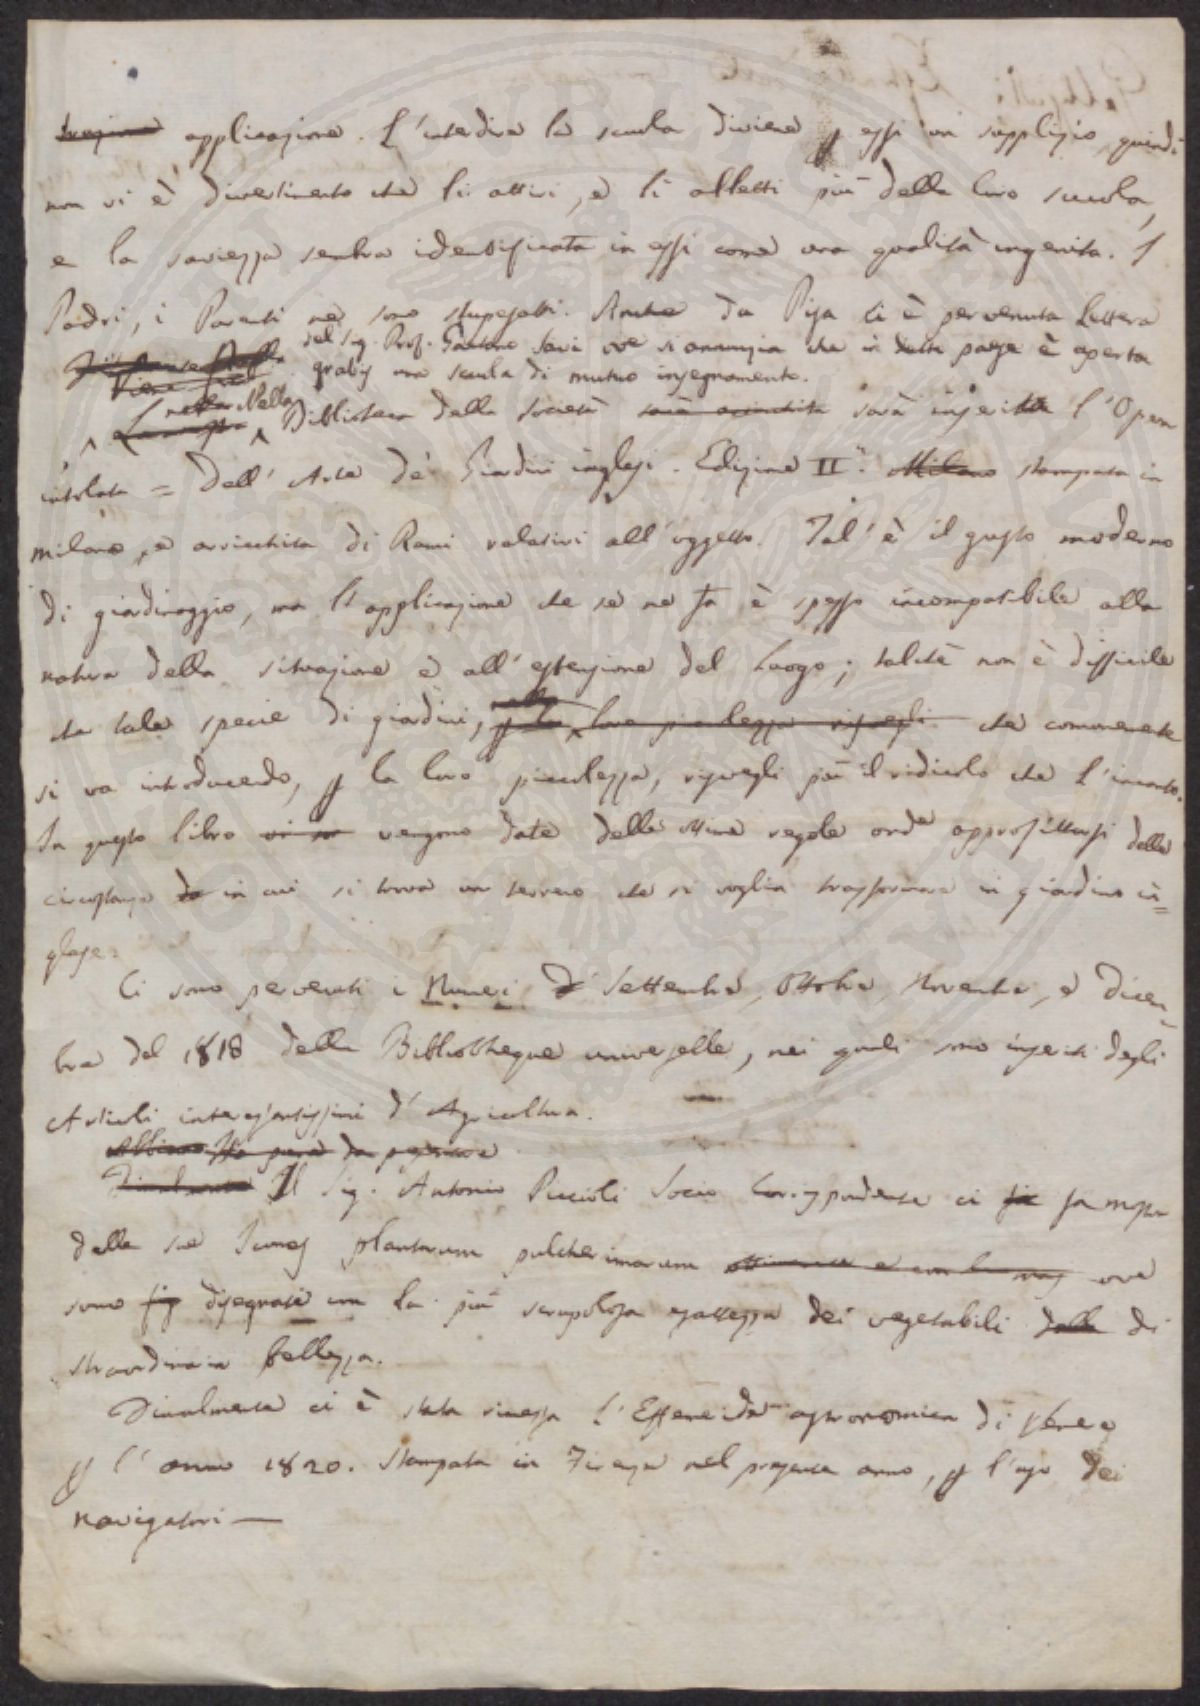 applicazione. L'interdire la scuola diviene p essi un supplizio, quindi
non vi è divertimento che li attiri, e li alletti più della loro scuola,
e la saviezza sembra identificata in essi come una qualità ingenita. I
Padri, i Parenti ne sono stupefatti. Anche da Pisa ci è pervenuta Lettera
del Sig. Prof. Gaetano Savi ove si annunzia che in detto paese è aperta
gratis una scuola di mutuo insegnamento.
Nella Biblioteca della società sarà inserita l'Opera
intitolata = Dell'Arte de' Giardini inglesi. Edizione II.ª Milano stampata in
Milano, e arricchita di Rami relativi all'oggetto. Tal'è il gusto moderno
di giardinaggio, ma l'applicazione che se ne fa è spesso incompatibile alla
natura della situazione e all'estensione del Luogo; talchè non è difficile
che tale specie di giardini, che comunemente
si va introducendo, p la loro piccolezza, risvegli più il ridicolo che l'incanto.
In questo libro vengono date delle ottime regole onde approfittarsi delle
circostanze in cui si trova un terreno che si voglia trasformare in giardino in=
glese.
Ci sono pervenuti i Numeri di Settembre, Ottobre, Novembre, e Dicem=
bre del 1818 della Bibliotheque universelle, nei quali sono inseriti degli
Articoli interessantissimi d'Agricoltura.
Il Sig. Antonio Piccioli Socio Corrispondente ci fa mostra
delle sue Icones plantarum pulcherimarum ove
sono disegnati con la più scrupolosa esattezza dei vegetabili di
straordinaria bellezza.
Finalmente ci è stata rimessa l'Effemeride astronomica di Venere
p l'anno 1820. Stampata in Firenze nel presente anno, p l'uso dei
navigatori —